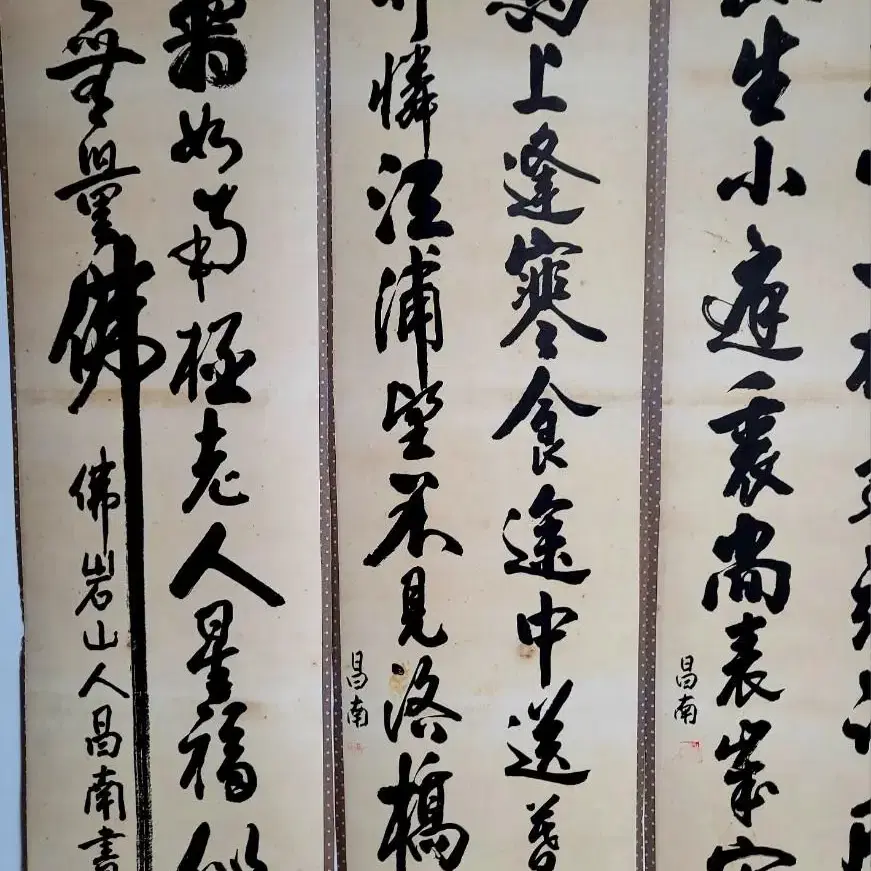 生小庭裏尚表歲寒
昌南
上逢寒食途中送暮
憐江浦望不見洛橋
昌南
如南極老人星福似
無量佛
佛岩山人昌南書